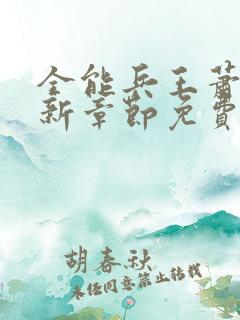 全能兵王萧
新章节免费
胡春秋
未经同意禁止转载